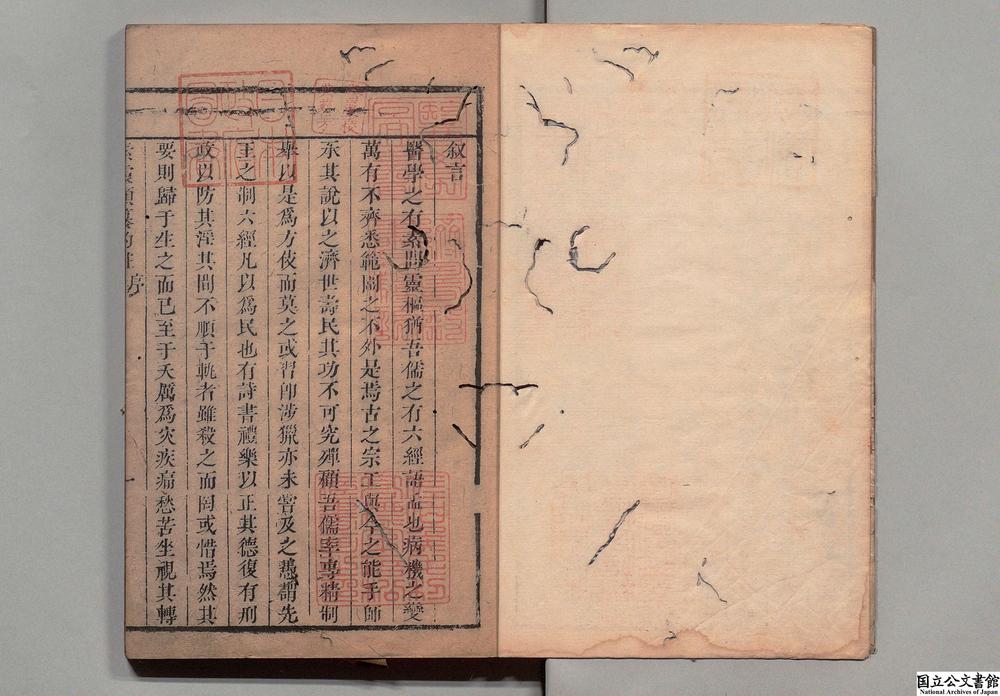 叙言
醫學之有素問靈樞猶吾儒之有六經語孟也病機之變
萬有不齊悉範圍之不外是焉古之宗工與今之能手師
承其說以之濟世壽民其功不可究殫顧吾儒率專精制
舉以是爲方伎而莫之或習即涉獵亦未嘗及之愚謂先
王之制六經凡以爲民也有詩書禮樂以正其德復有刑
政以防其淫其間不順于軌者雖殺之而罔或惜焉然其
要則歸于生之而已至于夭厲爲灾疾痛愁苦坐視其轉
素靈類纂約註 序 一
国立公文書館
National Archives of Japan